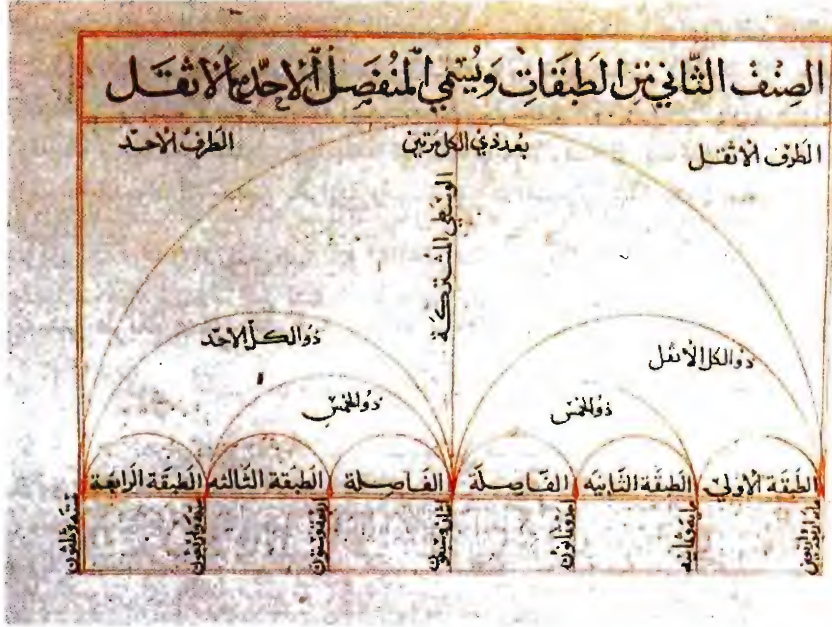 الصِنْفُ الثَّانِي مِنَ الطَبَقَاتِ وَيُسَمَّى المُنْفَصِلُ الأَحَدّ وَالأَثْقَل
الطرف الأثقل
بُعد ذي الكل مرتين
الطرف الأحدّ
الوسطى المشتركة
ذو الكل الأثقل
ذو الكل الأحدّ
ذو الخمس
ذو الخمس
الطبقة الأولى
الطبقة الثانيه
الفاصلة
الفاصلة
الطبقة الثالثه
الطبقة الرابعة
ستة وثلثون